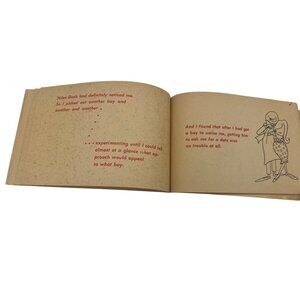 Nilan Book had definitely noticed me.
So I picked out another boy and
another and another .
. . . experimenting until I could tell
almost at a glance what ap-
proach would appeal
to what boy.
And I found that after I had got
a boy to notice me, getting him
to ask me for a date was
no trouble at all.